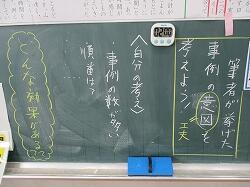 筆者が挙げた
事例の意図を
考えよう！
工夫
〈自分の考え〉
・事例の数が多い
・順番は？
どんな効果がある？